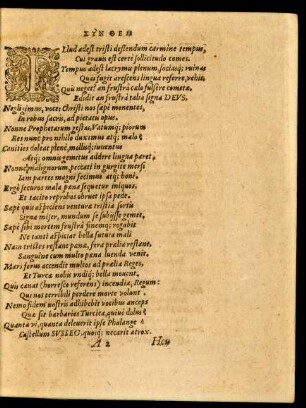 ΣΥΝΘΕΩ
ILlud adest tristi deflendum carmine tempus,
Cui grauis est certè sollicitudo comes.
Tempus adest lacrymis plenum, seclóq; ruinas
Quas fugit arescens lingua referre, vehit.
Quis neget? an frustrà cœlo fulsere cometæ,
Edidit an frustrà talia signa DEVS.
Negligimus, voces Christi nos sæpè monentes,
In rebus sacris, ad pietatis opus.
Nonne Prophetarum gestas, Vatumq; piorum
Res nunc pro nihilo duximus atq; malo
Canities doleat plenè, malluq; iuuentus
Atq; omnis gemitus addere lingua paret,
Nonne malignarum, peccati in gurgite mersi
Iam partes magni fecimus atq; boni,
Ergò securos mala pœna sequetur iniquos,
Et tacito reprobos obruet ipsa pede.
Sæpè quis aspiciens ventura tristia sortis
Signa miser, mundum se subiisse gemet,
Sæpè sibi mortem frustrà finemq; rogabit
Ne tanti aspiciat bella futura mali
Nam tristes restant pœnæ, fera prælia restant,
Sanguine cum multo pœna luenda venit.
Mars ferus accendit multos ad prælia Reges,
Et Turcæ nubis vndiq; bella mouent,
Quis canat (horresco referens) incendia, Regum:
Qui nos terribili perdere morte volunt.
Nemo fidem nostris adhibebit vocibus anceps
Quæ sit barbaries Turcica, quiue dolus
Quanta vi, quanta deleuerit ipse Phalange
Castellum SVSSEG, quoiq; necarit atrox.
A 2 Heu